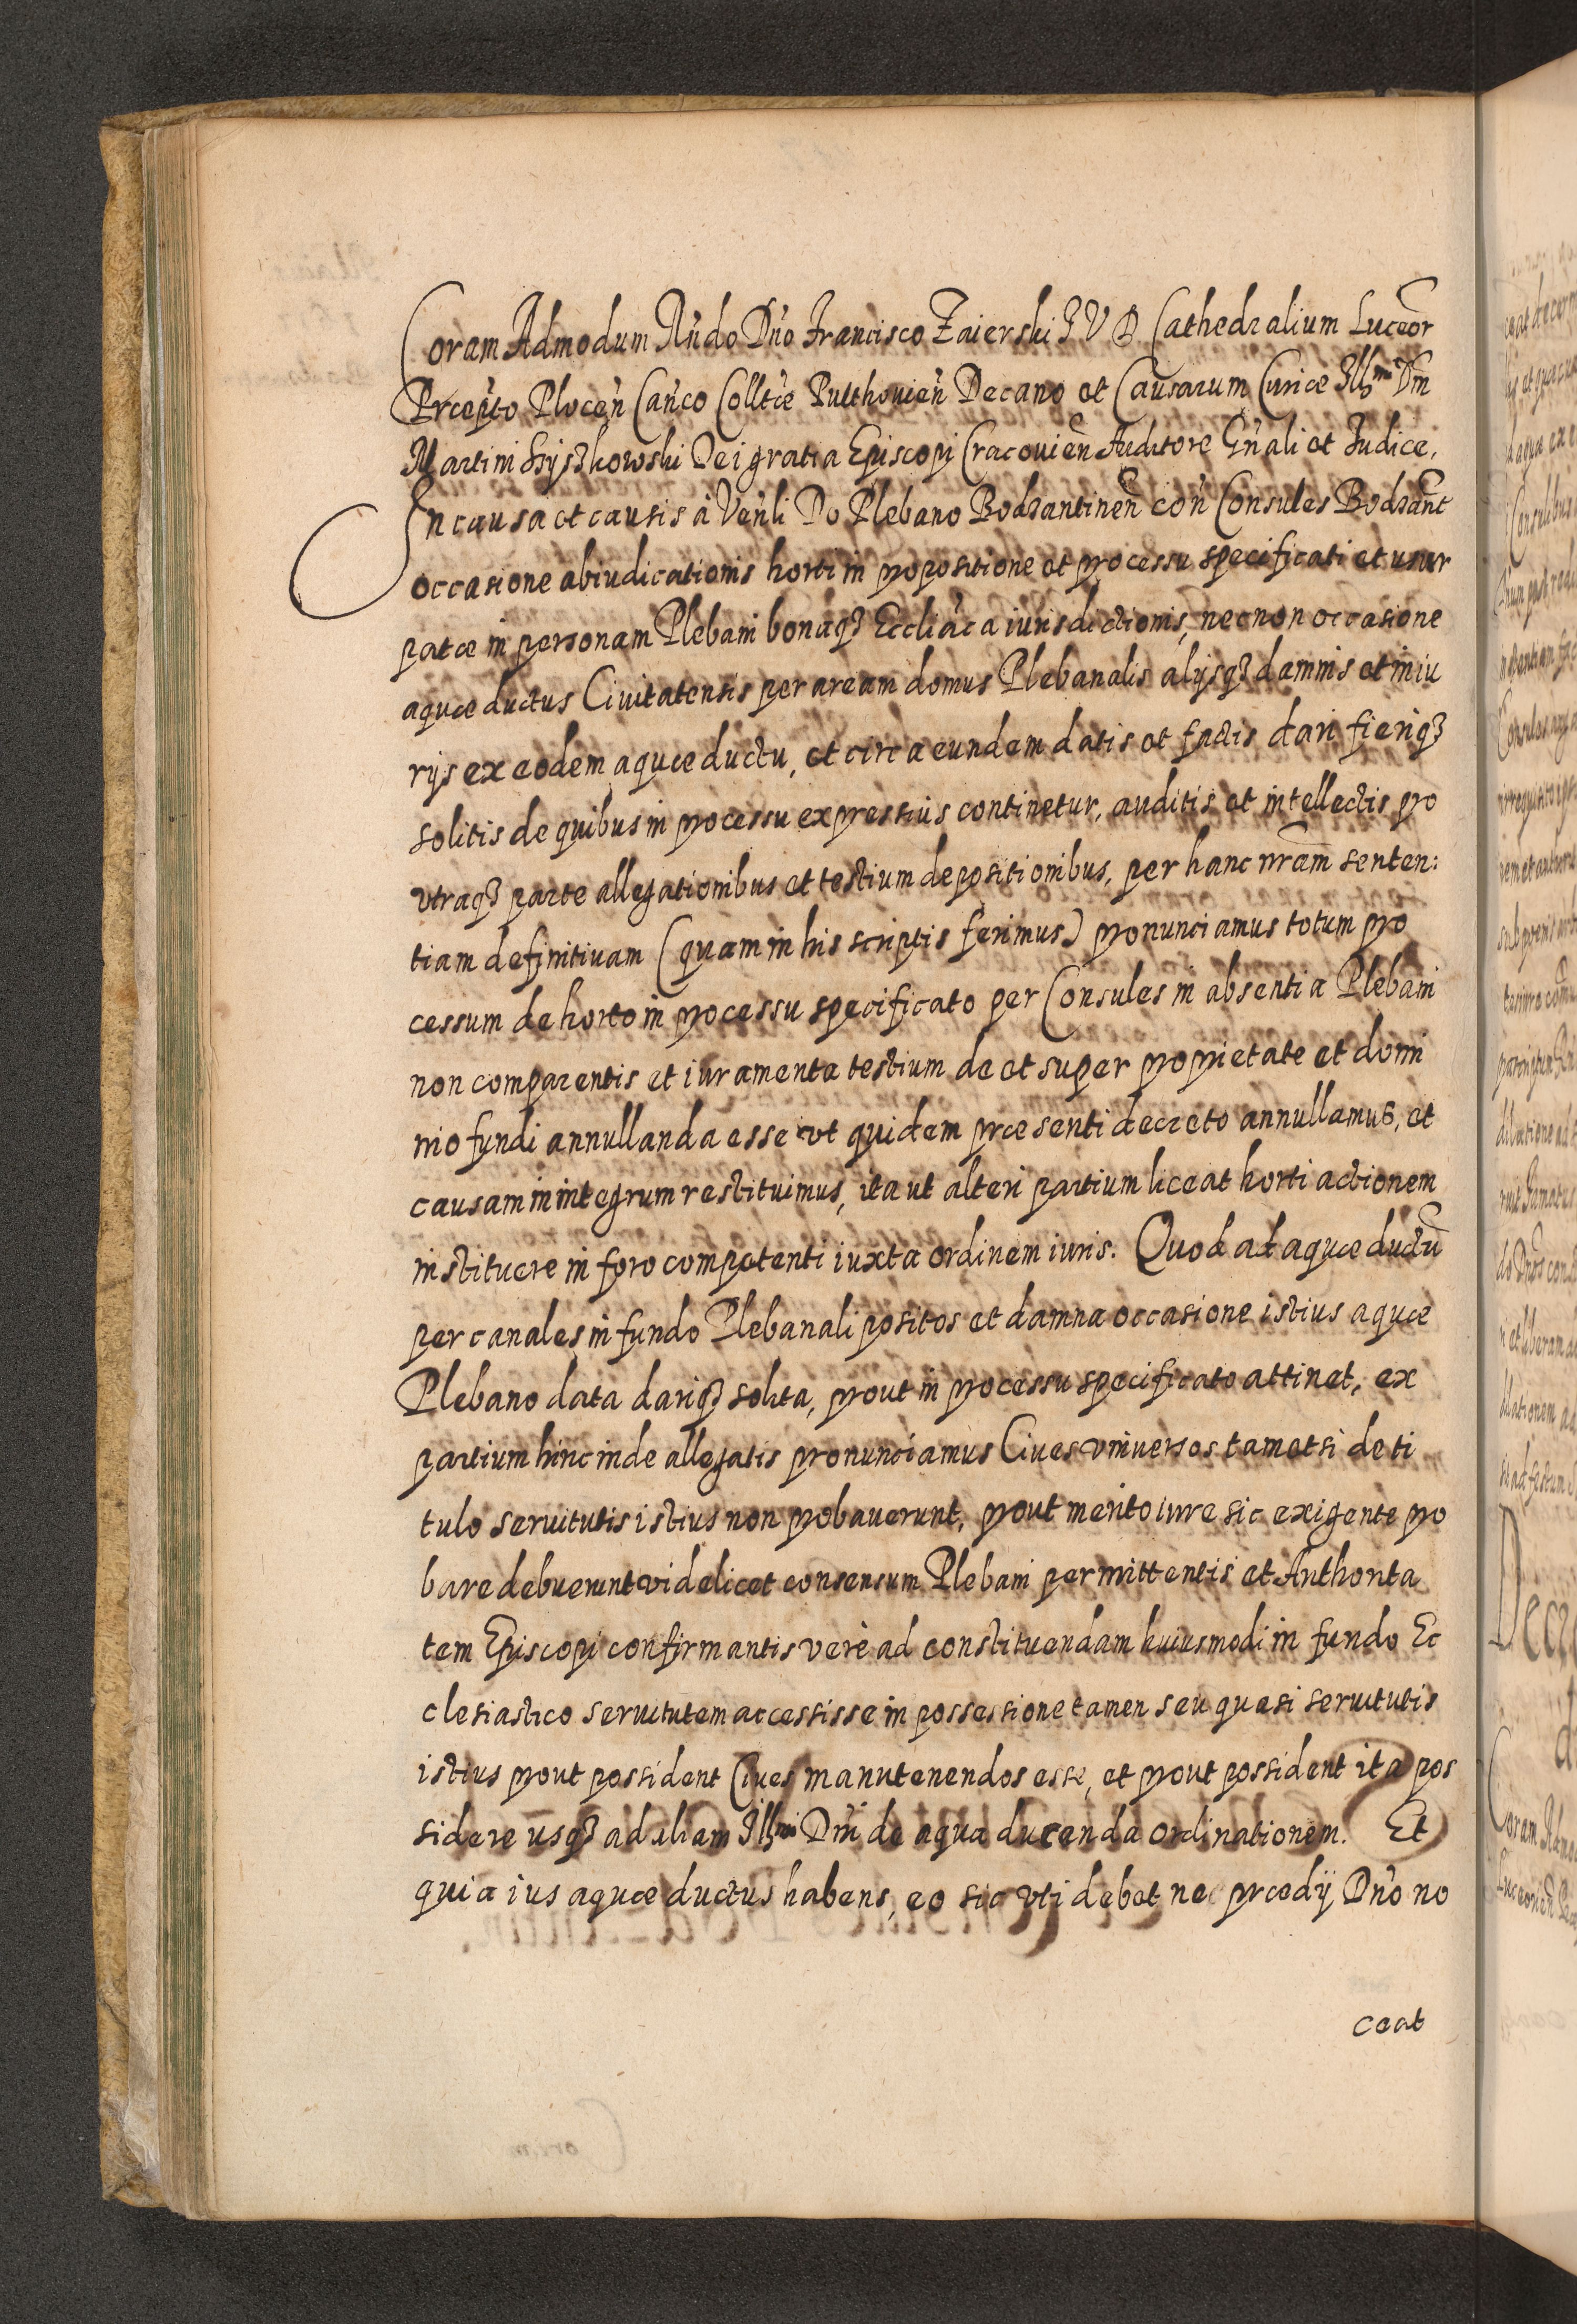 Coram Admodum Rńdo Dńo Francisco Zaierski I V D Cathedralium Luceor̃
Præpto Plocen̄ Cańco Colltæ Pulthouien̄ Decano et Causarum Curiæ Illmi Dm̄
Martini Szyszkowski Dei gratia Episcopi Cracouien̄ Auditore Gńali et Iudice,
In causa et causis à Veńli Do Plebano Bodzantinen̄ coń Consules Bodzant̃
occasione abiudicationis horti in propositione et processu specificati et usur
patæ in personam Plebani bonaqꝫ Eccliáca iurisdictionis, necnon occasione
aquæ ductus Ciuitatensis per aream domus Plebanalis alijsqꝫ damnis et iniu
rijs ex eodem aquæ ductu, et circa eundem datis et factis dari fieriqꝫ
solitis de quibus in processu expressius continetur, auditis et intellectis pro
vtraqꝫ parte allegationibus et testium depositionibus, per hanc nr̃am senten:
tiam definitiuam (quam in his scriptis ferimus) pronunciamus totum pro
cessum de horto in processu specificato per Consules in absentia Plebani
non comparentis et iuramenta testium de et super proprietate et domi
nio fundi annullanda esse vt quidem præsenti decreto annullamus, et
causam in integrum restituimus, ita ut alteri partium liceat horti actionem
instituere in foro competenti iuxta ordinem iuris. Quod ad aquæ ductū
per canales in fundo Plebanali positos et damna occasione istius aquæ
Plebano data dariqꝫ solita, prout in processu specificato attinet, ex
partium hinc inde allegatis pronunciamus Ciues vniuersos tametsi de ti
tulo seruitutis istius non probauerunt, prout merito iure sic exigente pro
bare debuerunt videlicet consensum Plebani permittentis et Authorita
tem Episcopi confirmantis verè ad constituendam huiusmodi in fundo Ec
clesiastico seruitutem accessisse in possessione tamen seu quasi seruitutis
istius prout possident Ciues manutenendos esse, et prout possident ita pos
sidere usqꝫ ad aliam Illmi Dm̄i de aqua ducenda ordinationem. Et
quia ius aquæ ductus habens, eo sic vti debet ne prædij Dńo no
ceat